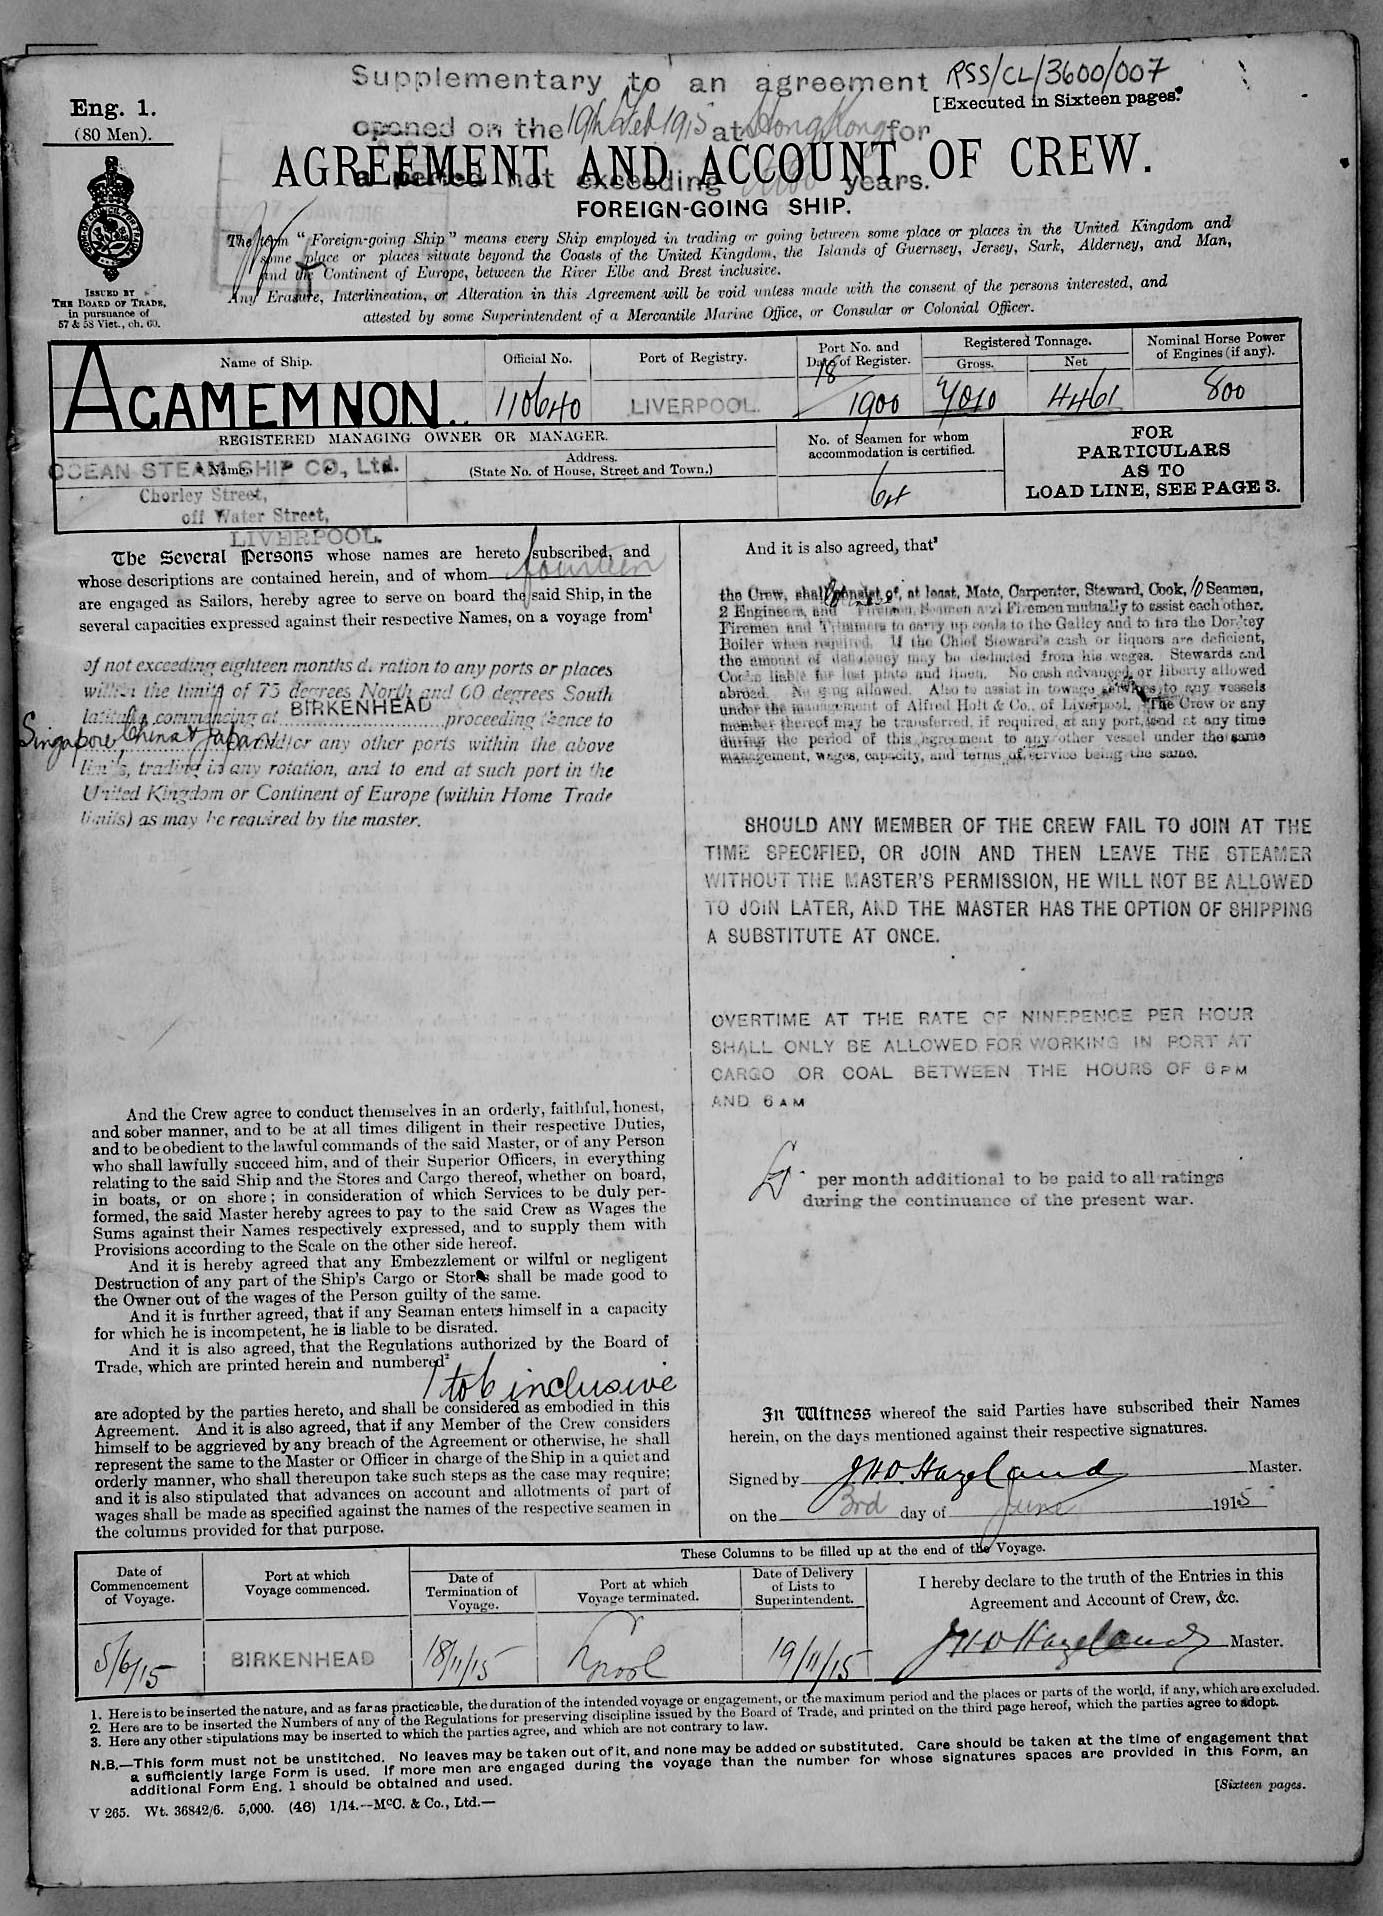 Supplementary to an agreement RSS/CL/3600/007
Eng. 1.
[Executed in Sixteen pages.
(80 Men).
opened on the 19th Feb 1915 at Hong Kong for
AGREEMENT AND ACCOUNT OF CREW.
a period not exceeding years.
FOREIGN-GOING SHIP.
The term "Foreign-going Ship" means every Ship employed in trading or going between some place or places in the United Kingdom and
some place or places situate beyond the Coasts of the United Kingdom, the Islands of Guernsey, Jersey, Sark, Alderney, and Man,
and the Continent of Europe, between the River Elbe and Brest inclusive.
Any Erasure, Interlineation, or Alteration in this Agreement will be void unless made with the consent of the persons interested, and
attested by some Superintendent of a Mercantile Marine Office, or Consular or Colonial Officer.
ISSUED BY
THE BOARD OF TRADE,
in pursuance of
57 & 58 Vict., ch. 60.
Name of Ship.
Official No.
Port of Registry.
Port No. and
Date of Register.
Registered Tonnage.
Gross.
Net
Nominal Horse Power
of Engines (if any).
AGAMEMNON
110640
LIVERPOOL.
18
1900
7010
4461
800
REGISTERED MANAGING OWNER OR MANAGER.
Name.
Address.
(State No. of House, Street and Town.)
No. of Seamen for whom
accommodation is certified.
FOR
PARTICULARS
AS TO
LOAD LINE, SEE PAGE 3.
OCEAN STEAM SHIP CO., Ltd.
Chorley Street,
off Water Street,
LIVERPOOL.
64
The Several Persons whose names are hereto subscribed, and
whose descriptions are contained herein, and of whom fourteen
are engaged as Sailors, hereby agree to serve on board the said Ship, in the
several capacities expressed against their respective Names, on a voyage from¹
of not exceeding eighteen months duration to any ports or places
within the limits of 75 degrees North and 60 degrees South
latitude, commencing at BIRKENHEAD proceeding thence to
Singapore, China & Japan and/or any other ports within the above
limits, trading in any rotation, and to end at such port in the
United Kingdom or Continent of Europe (within Home Trade
limits) as may be required by the master.
And the Crew agree to conduct themselves in an orderly, faithful, honest,
and sober manner, and to be at all times diligent in their respective Duties,
and to be obedient to the lawful commands of the said Master, or of any Person
who shall lawfully succeed him, and of their Superior Officers, in everything
relating to the said Ship and the Stores and Cargo thereof, whether on board,
in boats, or on shore; in consideration of which Services to be duly per-
formed, the said Master hereby agrees to pay to the said Crew as Wages the
Sums against their Names respectively expressed, and to supply them with
Provisions according to the Scale on the other side hereof.
And it is hereby agreed that any Embezzlement or wilful or negligent
Destruction of any part of the Ship's Cargo or Stores shall be made good to
the Owner out of the wages of the Person guilty of the same.
And it is further agreed, that if any Seaman enters himself in a capacity
for which he is incompetent, he is liable to be disrated.
And it is also agreed, that the Regulations authorized by the Board of
Trade, which are printed herein and numbered²
1 to 6 inclusive
are adopted by the parties hereto, and shall be considered as embodied in this
Agreement. And it is also agreed, that if any Member of the Crew considers
himself to be aggrieved by any breach of the Agreement or otherwise, he shall
represent the same to the Master or Officer in charge of the Ship in a quiet and
orderly manner, who shall thereupon take such steps as the case may require;
and it is also stipulated that advances on account and allotments of part of
wages shall be made as specified against the names of the respective seamen in
the columns provided for that purpose.
And it is also agreed, that³
the Crew, shall consist of, at least, Mate, Carpenter, Steward, Cook, 10 Seamen,
2 Engineers, and Firemen, Seamen and Firemen mutually to assist each other.
Firemen and Trimmers to carry up coals to the Galley and to fire the Donkey
Boiler when required. If the Chief Steward's cash or liquors are deficient,
the amount of deficiency may be deducted from his wages. Stewards and
Cooks liable for lost plate and linen. No cash advanced, or liberty allowed
abroad. No grog allowed. Also to assist in towage services to any vessels
under the management of Alfred Holt & Co., of Liverpool. The Crew or any
member thereof may be transferred, if required, at any port, and at any time
during the period of this agreement to any other vessel under the same
management, wages, capacity, and terms of service being the same.
SHOULD ANY MEMBER OF THE CREW FAIL TO JOIN AT THE
TIME SPECIFIED, OR JOIN AND THEN LEAVE THE STEAMER
WITHOUT THE MASTER'S PERMISSION, HE WILL NOT BE ALLOWED
TO JOIN LATER, AND THE MASTER HAS THE OPTION OF SHIPPING
A SUBSTITUTE AT ONCE.
OVERTIME AT THE RATE OF NINEPENCE PER HOUR
SHALL ONLY BE ALLOWED FOR WORKING IN PORT AT
CARGO OR COAL BETWEEN THE HOURS OF 6 PM
AND 6 AM
per month additional to be paid to all ratings
during the continuance of the present war.
In Witness whereof the said Parties have subscribed their Names
herein, on the days mentioned against their respective signatures.
Signed by J H D Hazeland Master.
on the 3rd day of June 1915
These Columns to be filled up at the end of the Voyage.
Date of
Commencement
of Voyage.
Port at which
Voyage commenced.
Date of
Termination of
Voyage.
Port at which
Voyage terminated.
Date of Delivery
of Lists to
Superintendent.
I hereby declare to the truth of the Entries in this
Agreement and Account of Crew, &c.
5/6/15
BIRKENHEAD
18/11/15
L'pool
19/11/15
J H D Hazeland Master.
1. Here is to be inserted the nature, and as far as practicable, the duration of the intended voyage or engagement, or the maximum period and the places or parts of the world, if any, which are excluded.
2. Here are to be inserted the Numbers of any of the Regulations for preserving discipline issued by the Board of Trade, and printed on the third page hereof, which the parties agree to adopt.
3. Here any other stipulations may be inserted to which the parties agree, and which are not contrary to law.
N.B.—This form must not be unstitched. No leaves may be taken out of it, and none may be added or substituted. Care should be taken at the time of engagement that
a sufficiently large Form is used. If more men are engaged during the voyage than the number for whose signatures spaces are provided in this Form, an
additional Form Eng. 1 should be obtained and used.
[Sixteen pages.
V 265. Wt. 36842/6. 5,000. (46) 1/14.--McC. & Co., Ltd.—